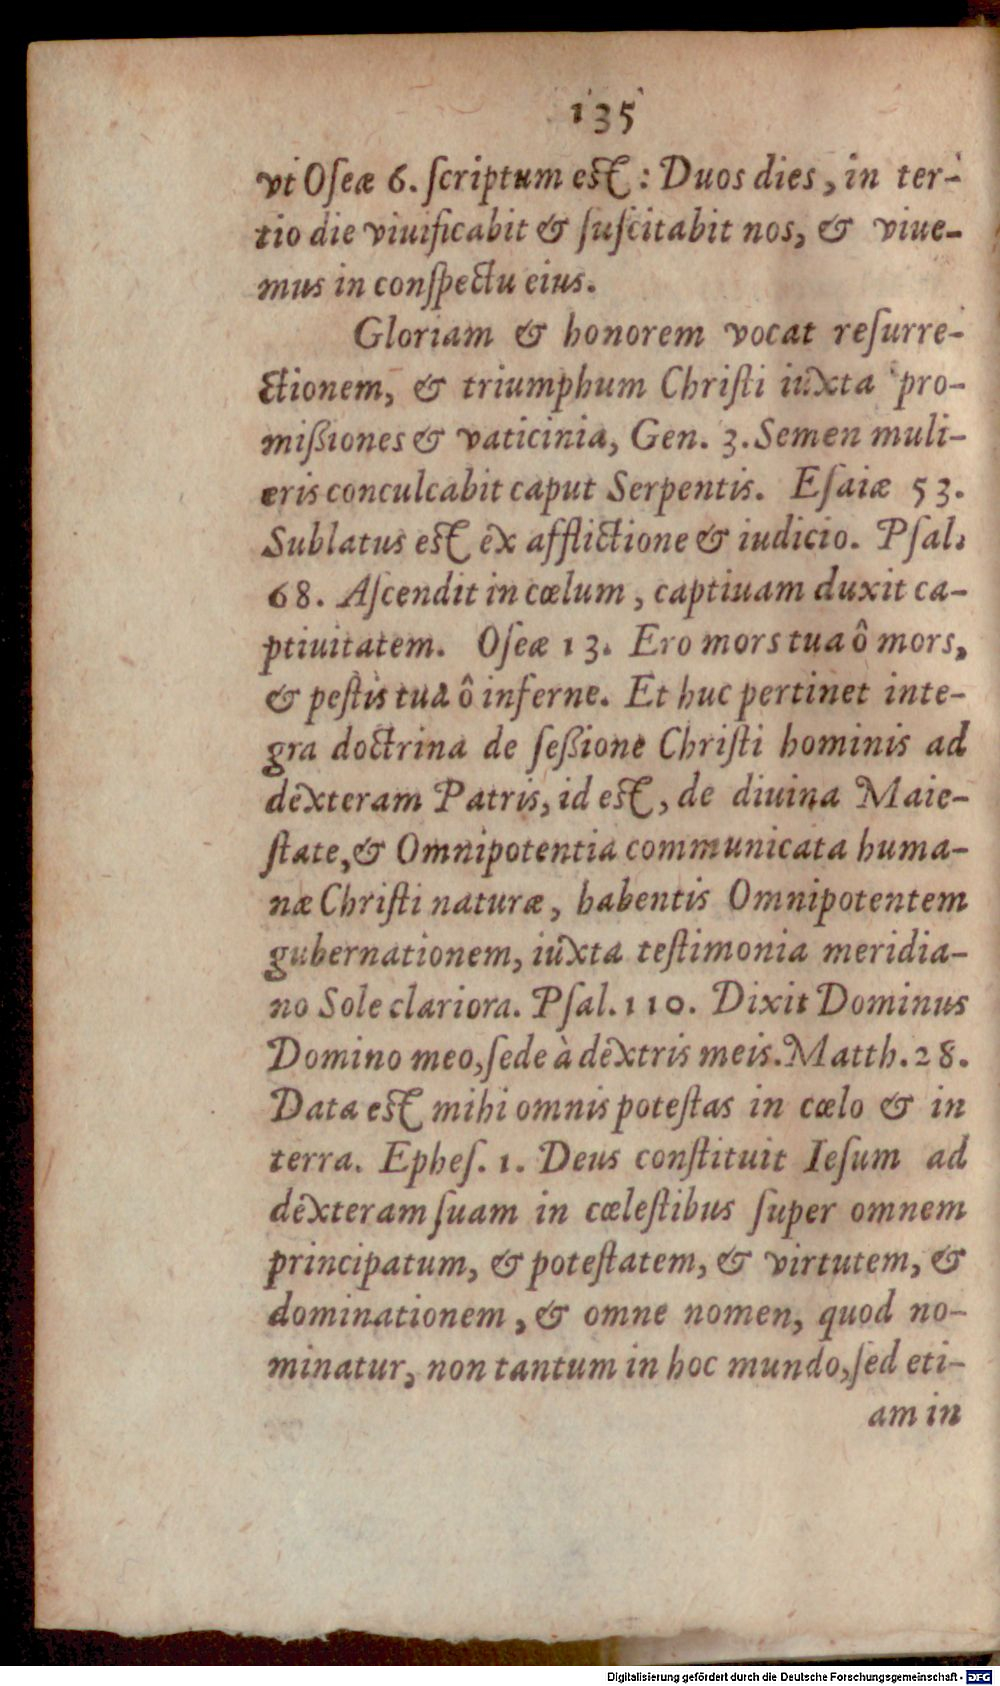 135
vt Oſeæ 6. ſcriptum eſt : Duos dies, in ter-
tio die viuificabit & ſuſcitabit nos, & viue-
mus in conſpectu eius.
Gloriam & honorem vocat reſurre-
ctionem, & triumphum Chriſti iuxta pro-
mißiones & vaticinia, Gen. 3. Semen muli-
eris conculcabit caput Serpentis. Eſaiæ 53.
Sublatus eſt ex afflictione & iudicio. Pſal.
68. Aſcendit in cœlum, captiuam duxit ca-
ptiuitatem. Oſeæ 13. Ero mors tua ô mors,
& peſtis tua ô inferne. Et huc pertinet inte-
gra doctrina de ſeßione Chriſti hominis ad
dexteram Patris, id eſt, de diuina Maie-
ſtate, & Omnipotentia communicata huma-
næ Chriſti naturæ, habentis Omnipotentem
gubernationem, iuxta teſtimonia meridia-
no Sole clariora. Pſal. 110. Dixit Dominus
Domino meo, ſede à dextris meis. Matth. 28.
Data eſt mihi omnis poteſtas in cœlo & in
terra. Epheſ. 1. Deus conſtituit Ieſum ad
dexteram ſuam in cœleſtibus ſuper omnem
principatum, & poteſtatem, & virtutem, &
dominationem, & omne nomen, quod no-
minatur, non tantum in hoc mundo, ſed eti-
am in
Digitalisierung gefördert durch die Deutsche Forschungsgemeinschaft - DFG